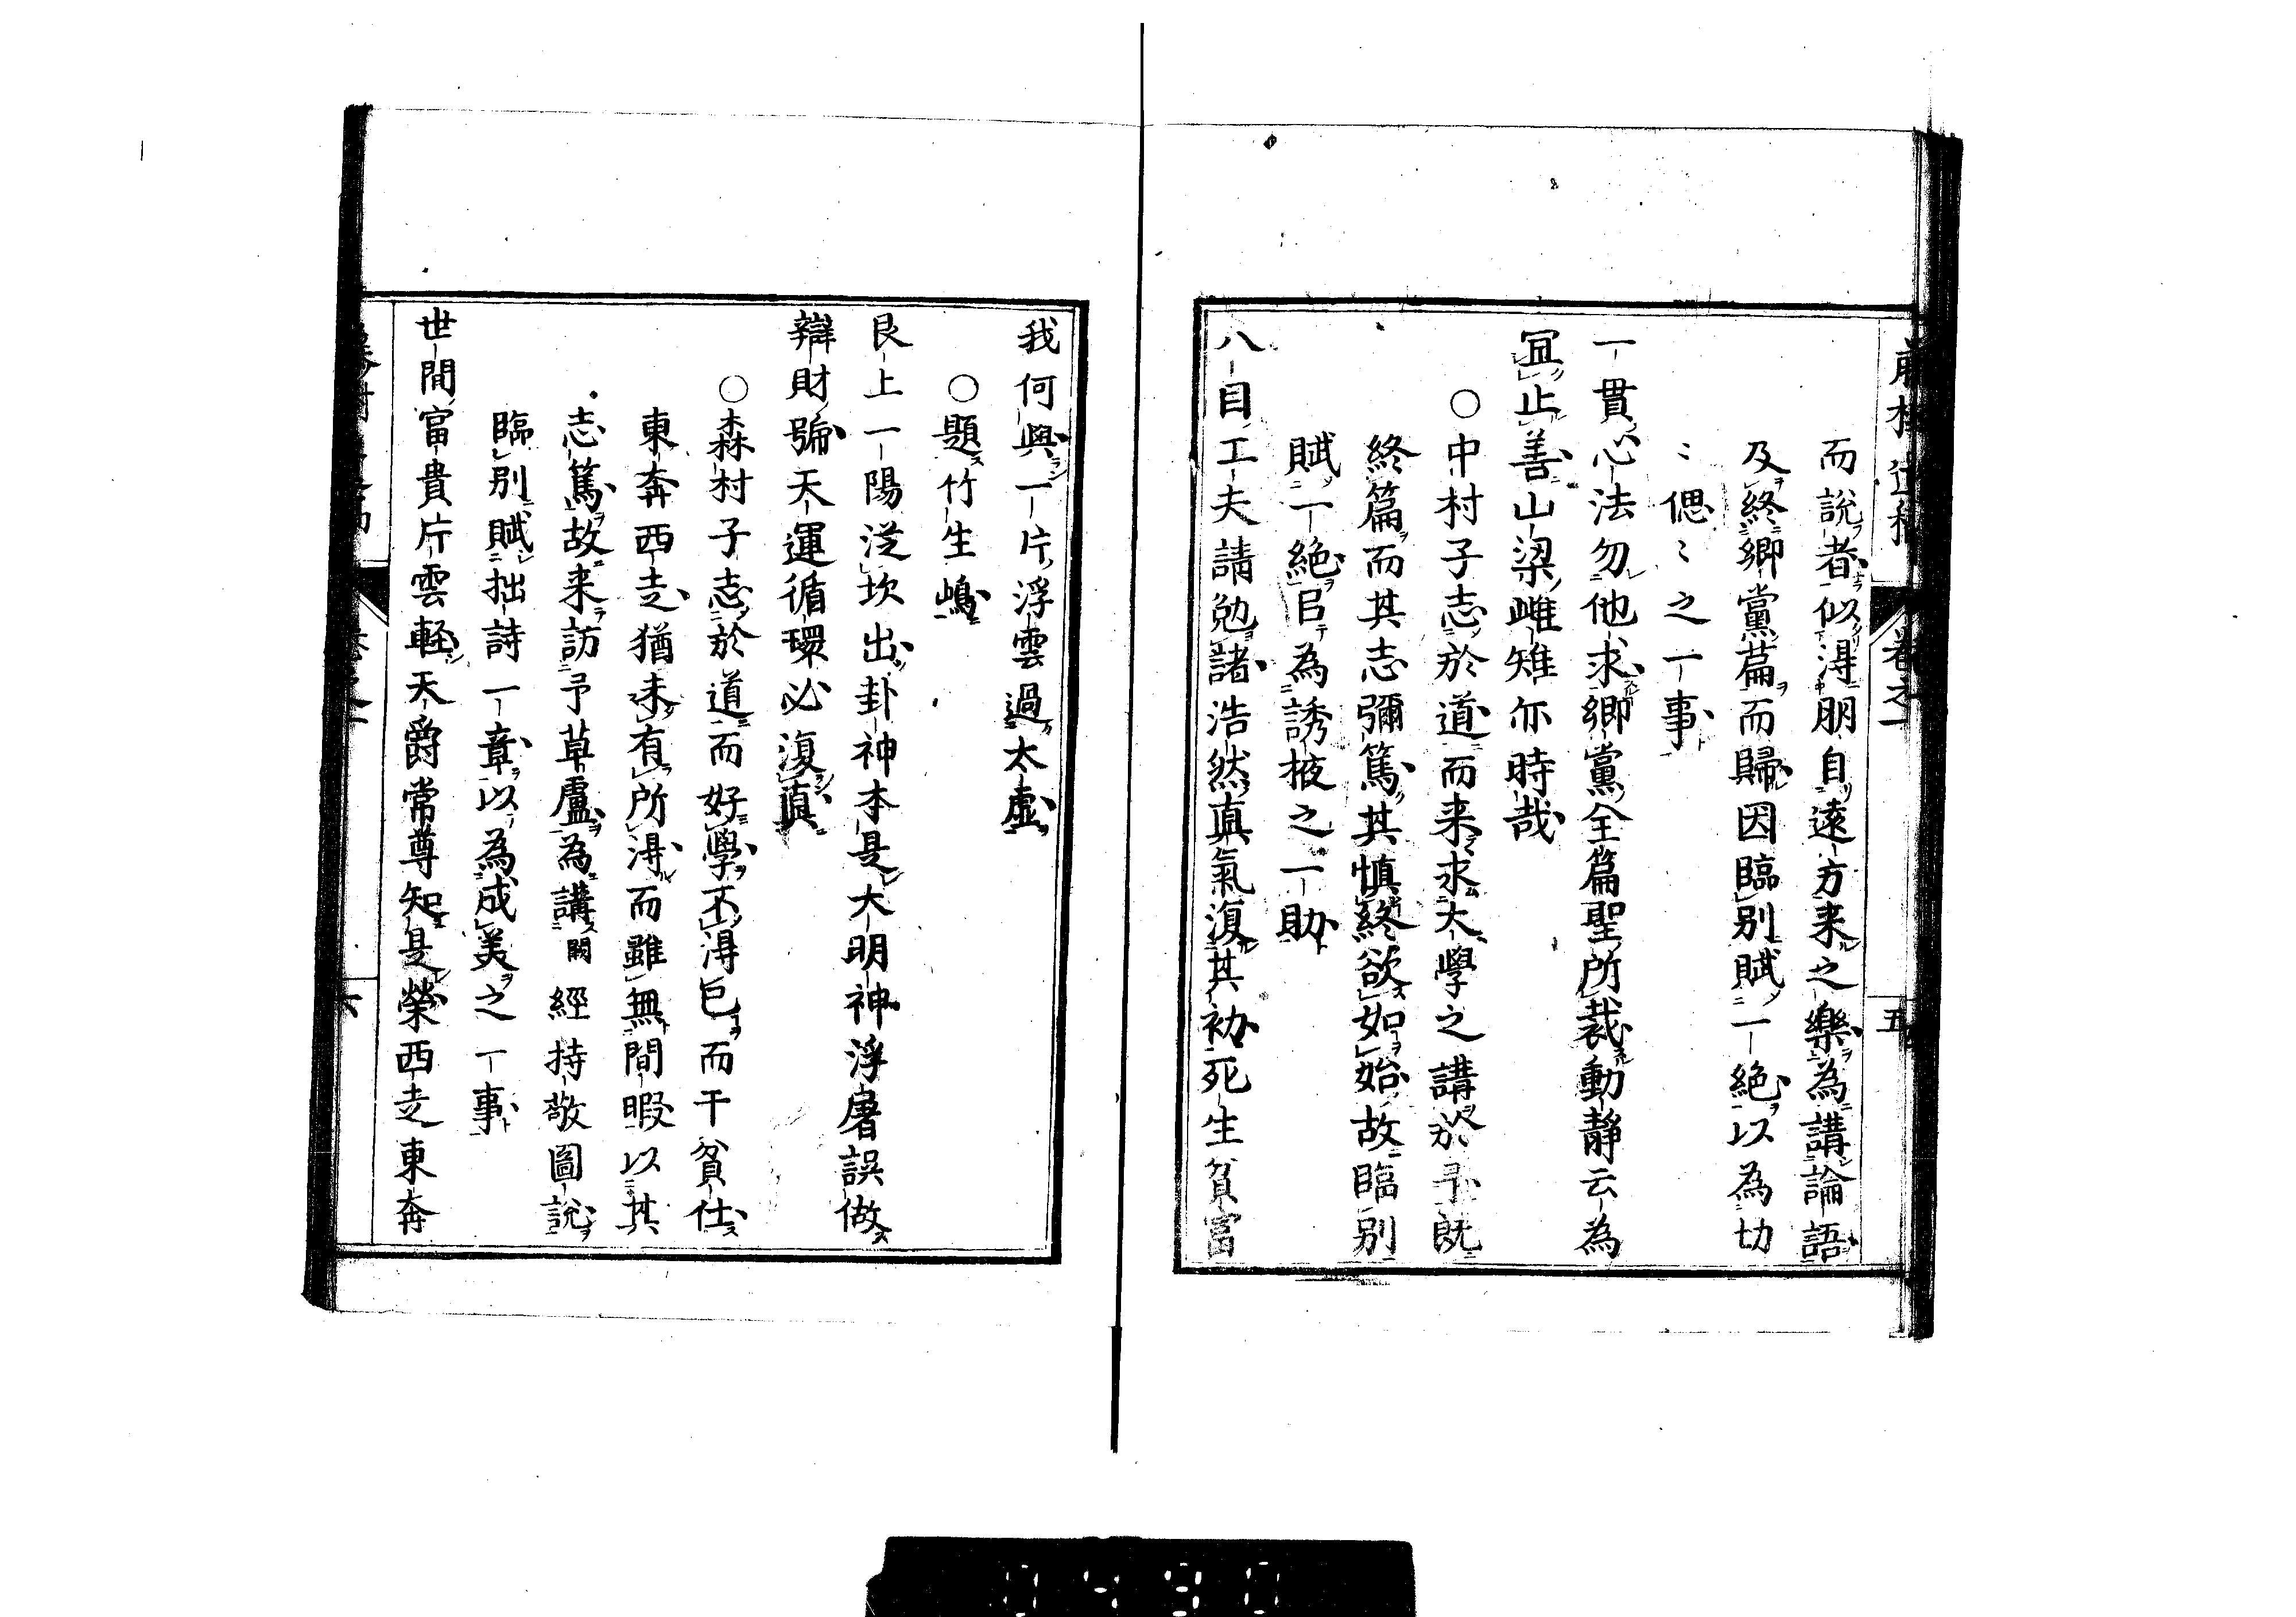 卷之一
五
而說者似淂朋自遠方来之樂為講論語
及終鄉黨篇而歸因臨別賦一絕以為切
〻偲〻之一事
一貫心法勿他求鄉黨全篇聖所裁動靜云為
冝止善山梁雌雉亦時哉
○中村子志於道而来求大學之講於予既
終篇而其志彌篤其慎終欲如始故臨別
賦一絕㠯為誘掖之一助
八目工夫請勉諸浩然真氣復其初死生貧富
我何與一片浮雲過太虛
○題竹生嶋
艮上一陽從坎出卦神本是大明神浮屠誤做
辯財號天運循環必復真
○森村子志於道而好學不淂已而干貧仕
東奔西走猶未有所淂而雖無間暇以其
志篤故来訪予草盧為講 闕 經持敬圖說
臨別賦拙詩一章以為成美之一事
世間富貴片雲軽天爵常尊知是榮西走東奔
六
0490